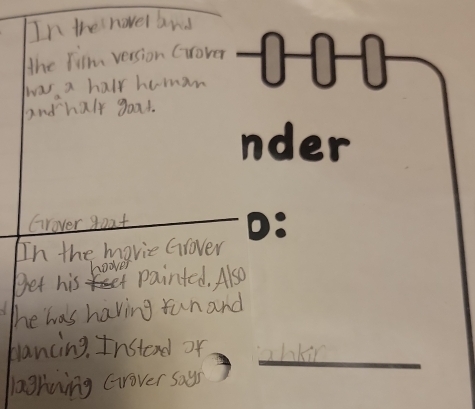 In the novel and
the Firm version Grover
was a half human
and half goat.
nder
Grover goat
D:
In the movie Grover
get his hoover painted. Also
he was having fun and
dancing. Instead of
Grover says